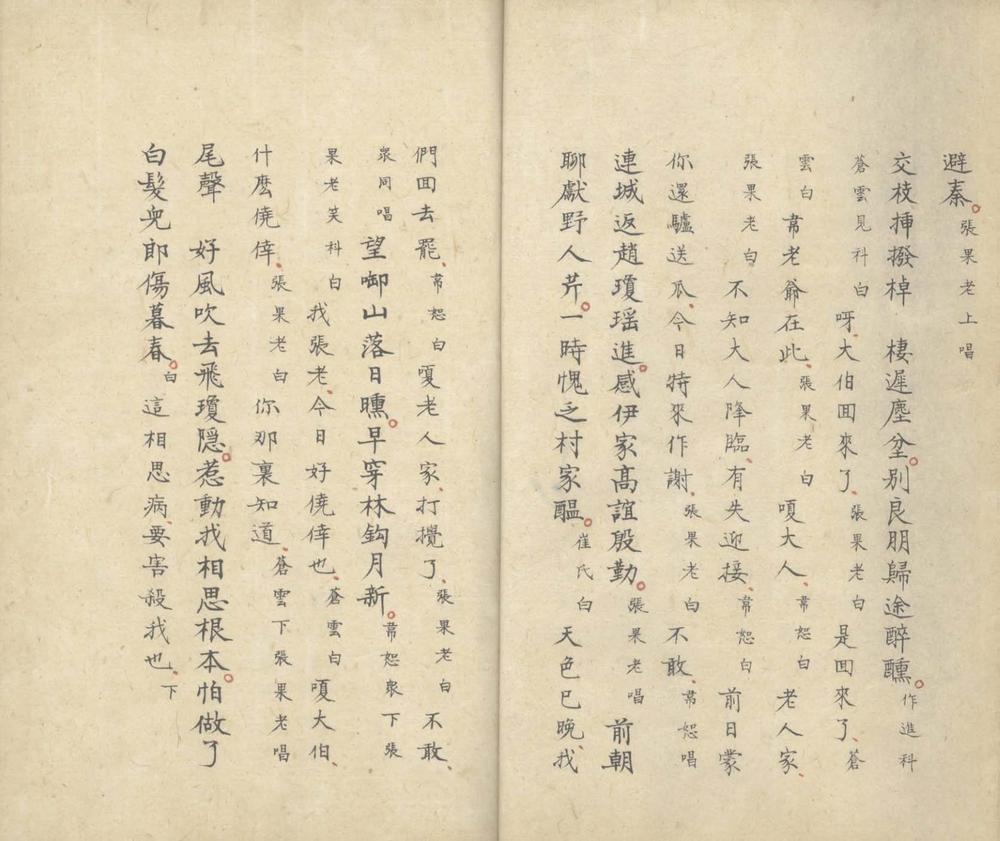 避秦。張果老上唱
交枝揷撥棹　棲遲塵坌。別良朋歸途醉醺。作進科
蒼雲見科白　呀、大伯回來了、張果老白　是回來了、蒼
雲白　韋老爺在此、張果老白　嗄大人、韋恕白　老人家、
張果老白　不知大人降臨、有失迎接、韋恕白　前日蒙
你還驢送瓜、今日特來作謝、張果老白　不敢、韋恕唱
連城返趙瓊瑶進。感伊家高誼殷勤。張果老唱　前朝
聊獻野人芹。一時愧乏村家醖。崔氏白　天色已晚、我
們回去罷、韋恕白　嗄老人家、打攪了、張果老白　不敢、
衆同唱　望啣山落日曛。早穿林鈎月新。韋恕衆下張
果老笑科白　我張老、今日好僥倖也、蒼雲白　嗄大伯、
什麽僥倖、張果老白　你那裏知道、蒼雲下張果老唱
尾聲　好風吹去飛瓊隱。惹動我相思根本。怕做了
白髮兒郎傷暮春。白這相思病、要害殺我也、下